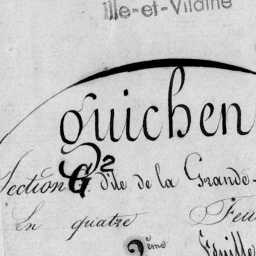 Ille-et-Vilaine
guichen
Section G2 d'Ile de la Grande-
En quatre Feu
2ème Feuille